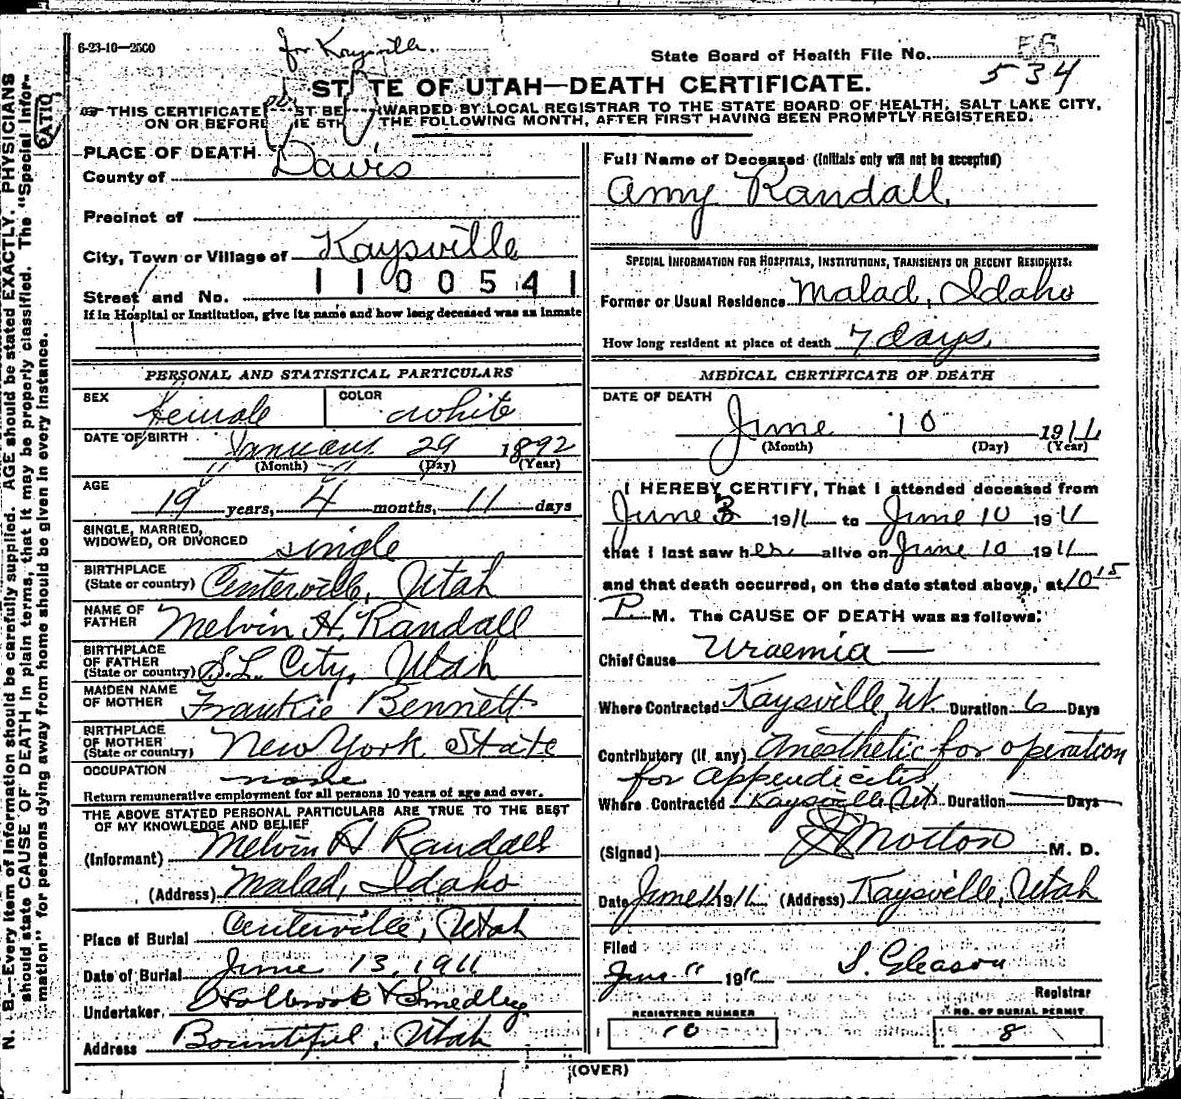 for Kaysville.
6-23-10—2500
State Board of Health File No. 56
534
STATE OF UTAH—DEATH CERTIFICATE.
THIS CERTIFICATE MUST BE FORWARDED BY LOCAL REGISTRAR TO THE STATE BOARD OF HEALTH, SALT LAKE CITY,
ON OR BEFORE THE 5TH THE FOLLOWING MONTH, AFTER FIRST HAVING BEEN PROMPTLY REGISTERED.
PLACE OF DEATH
County of Davis
Precinct of
City, Town or Village of Kaysville
1100541
Street and No.
If in Hospital or Institution, give its name and how long deceased was an inmate
Full Name of Deceased (Initials only will not be accepted)
Amy Randall
SPECIAL INFORMATION FOR HOSPITALS, INSTITUTIONS, TRANSIENTS OR RECENT RESIDENTS:
Former or Usual Residence Malad, Idaho
How long resident at place of death 7 days
PERSONAL AND STATISTICAL PARTICULARS
SEX female COLOR white
DATE OF BIRTH January 29 1892
(Month) (Day) (Year)
AGE
19 years, 4 months, 11 days
SINGLE, MARRIED,
WIDOWED, OR DIVORCED single
BIRTHPLACE
(State or country) Centerville, Utah
NAME OF
FATHER Melvin H. Randall
BIRTHPLACE
OF FATHER
(State or country) S.L. City, Utah
MAIDEN NAME
OF MOTHER Frankie Bennett
BIRTHPLACE
OF MOTHER
(State or country) New York State
OCCUPATION none
Return remunerative employment for all persons 10 years of age and over.
THE ABOVE STATED PERSONAL PARTICULARS ARE TRUE TO THE BEST
OF MY KNOWLEDGE AND BELIEF
(Informant) Melvin H Randall
(Address) Malad, Idaho
Place of Burial Centerville, Utah
Date of Burial June 13, 1911
Undertaker Holbrook & Smedley
Address Bountiful, Utah
MEDICAL CERTIFICATE OF DEATH
DATE OF DEATH
June 10 1911
(Month) (Day) (Year)
I HEREBY CERTIFY, That I attended deceased from
June 3 1911 to June 10 1911
that I last saw her alive on June 10 1911
and that death occurred, on the date stated above, at 10 15
P. M. The CAUSE OF DEATH was as follows:
Chief Cause Uraemia —
Where Contracted Kaysville, Ut. Duration 6 Days
Contributory (if any) Anesthetic for operation
for appendicitis
Where Contracted Kaysville, Ut Duration — Days
(Signed) Morton M. D.
Date June 11 1911 (Address) Kaysville, Utah
Filed
June 11 1911 S. Gleason
Registrar
REGISTERED NUMBER
10
NO. OF BURIAL PERMIT
8
(OVER)
N. B.—Every item of information should be carefully supplied. AGE should be stated EXACTLY. PHYSICIANS
should state CAUSE OF DEATH in plain terms, that it may be properly classified. The "Special Infor-
mation" for persons dying away from home should be given in every instance.